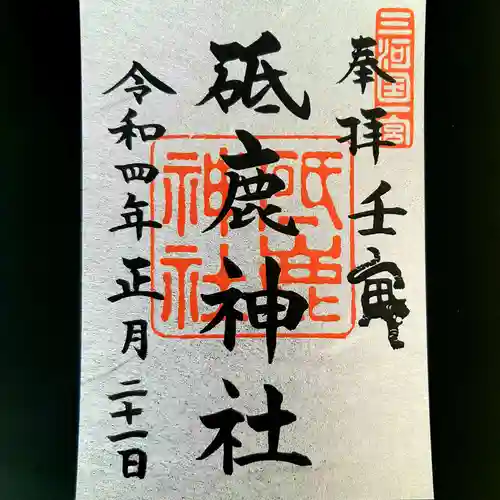 三河国一宮
奉拝 壬寅
砥鹿神社
砥鹿神社
令和四年正月二十一日